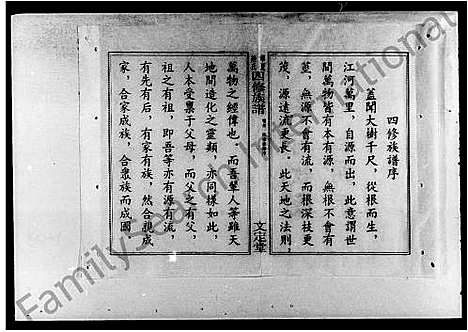 四修族譜序
蓋聞大樹千尺，從根而生，
江河萬里，自源而出，此意謂世
間萬物皆有本有源，無根不會有
莖，無源不會有流，而根深枝更
茂，源遠流更長．此天地之法則，
四修族譜
文定堂
萬物之經偉也．而吾輩人等雖天
地間造化之靈顯，亦同樣如此，
人本受稟于父母，而父之有父，
祖之有祖，即吾等亦有源有流，
有先有后，有家有族，然合親成
家，合家成族，合衆族而成國
FamilySearch International